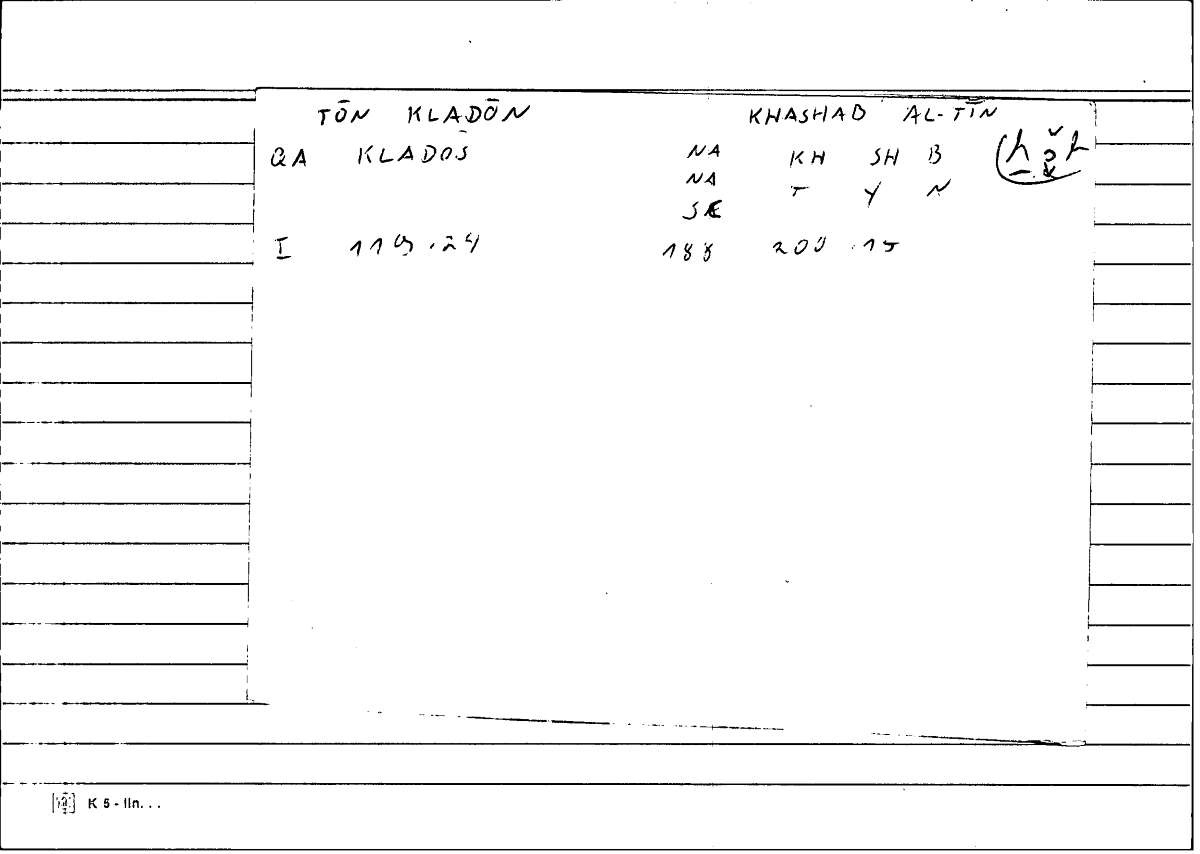 TŌN KLADŌN KHASHAB AL-TĪN
QA KLADOS NA KH SH B (ḫšb
NA T Y N
SE
I 119.24 188 200 .15
K 5 - lin...